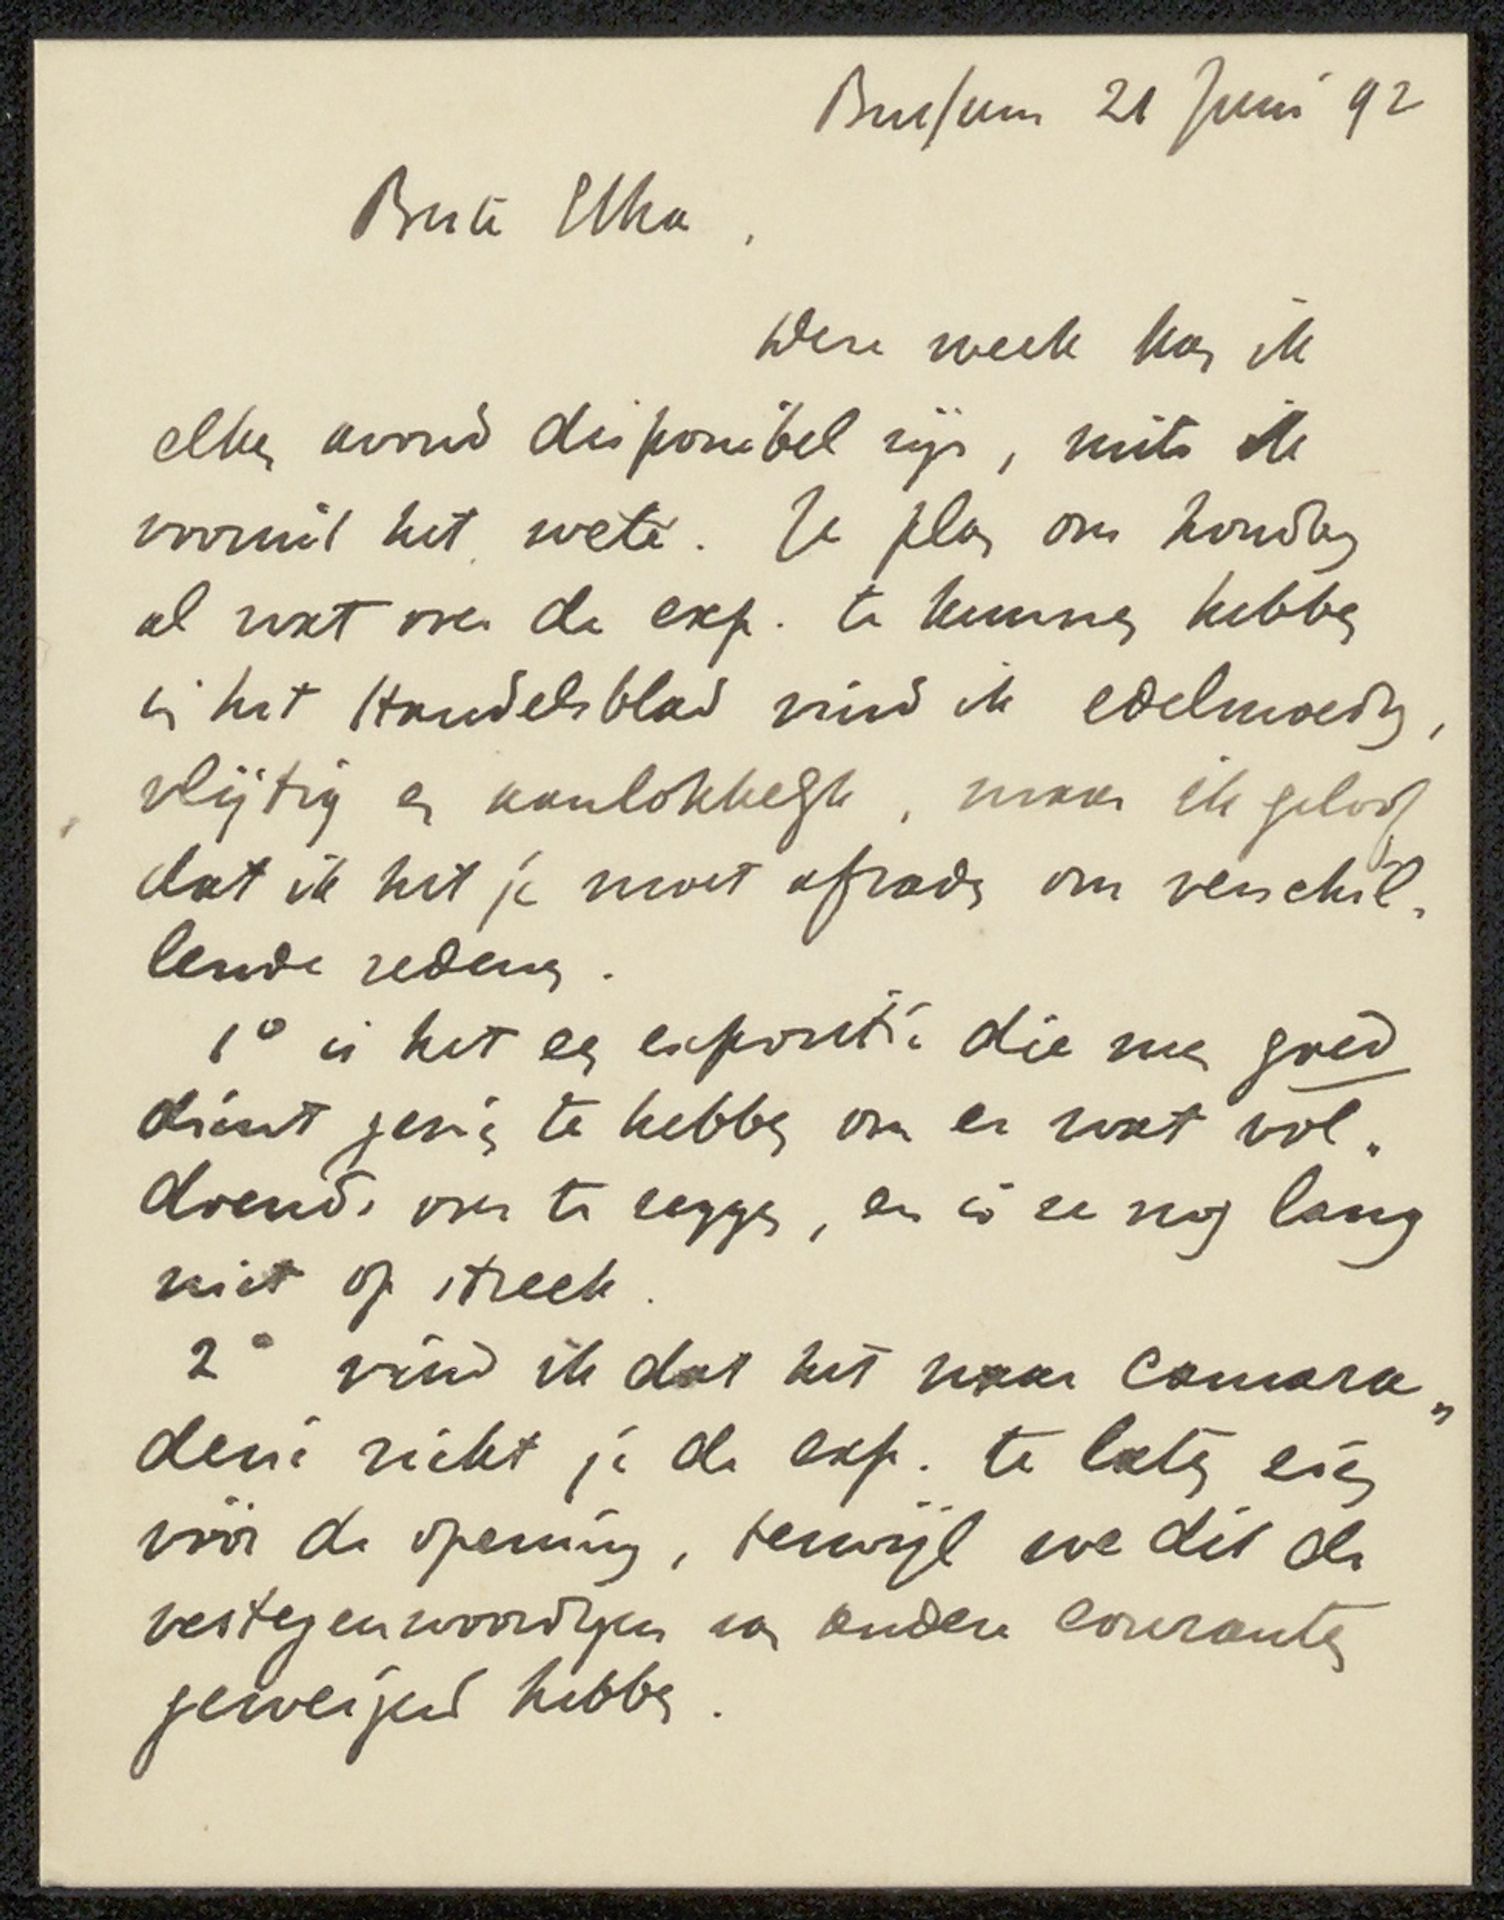 Bussum 21 Juni 92
Beste Ilka,
Deze week kan ik
elken avond disponibel zijn, mits ik
vooruit het wete. Je plan om honderd
al wat over de exp. te kunnen hebben
in het Handelsblad vind ik edelmoedig,
vlijtig en aanlokkelijk, maar ik geloof
dat ik het je moet afraden om verschil-
lende redenen.
1° is het een expositie die men goed
dient gezien te hebben om er wat vol-
doends over te zeggen, en is ze nog lang
niet op streek.
2° vind ik dat het naar camara-
derie riekt je de exp. te laten zien
vóór de opening, terwijl we dit de
vertegenwoordigers van andere couranten
geweigerd hebben.